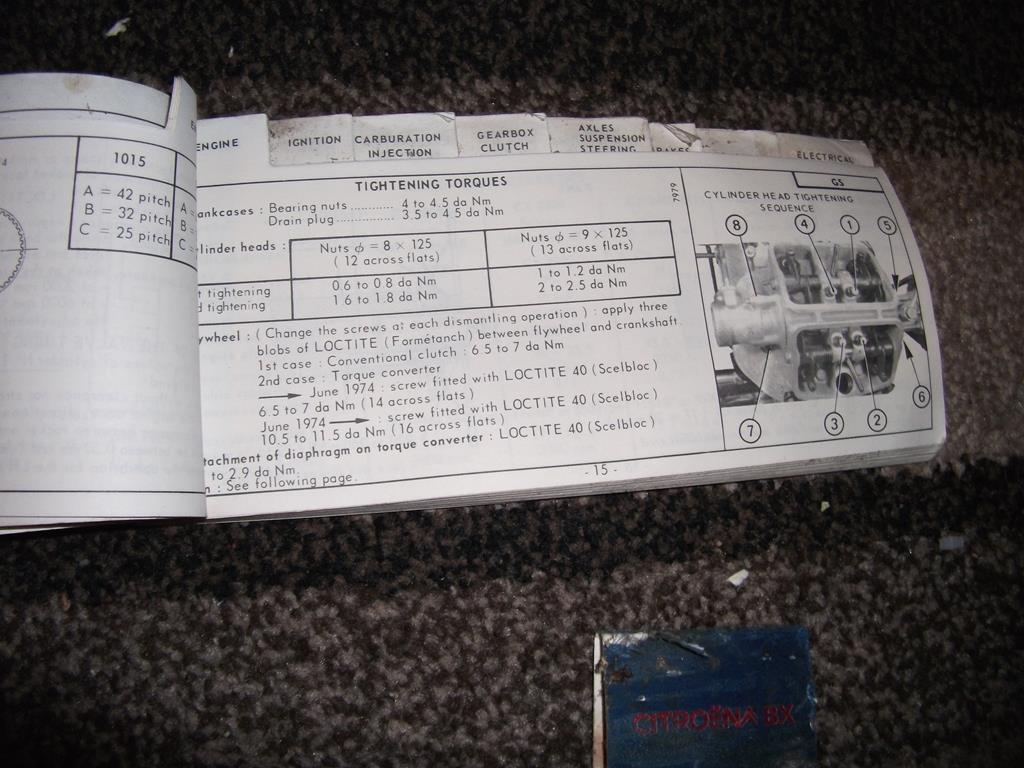 1015
A = 42 pitch
B = 32 pitch
C = 25 pitch
A =
B =
C
ENGINE
IGNITION
CARBURATION
INJECTION
GEARBOX
CLUTCH
AXLES
SUSPENSION
STEERING
ELECTRICAL
TIGHTENING TORQUES
ankcases : Bearing nuts ........... 4 to 4.5 da Nm
Drain plug .............. 3.5 to 4.5 da Nm
7979
linder heads :
Nuts ϕ = 8 × 125
( 12 across flats)
Nuts ϕ = 9 × 125
(13 across flats)
t tightening
d tightening
0.6 to 0 8 da Nm
1 6 to 1.8 da Nm
1 to 1.2 da Nm
2 to 2.5 da Nm
ywheel : ( Change the screws at each dismantling operation ) : apply three
blobs of LOCTITE ( Formétanch ) between flywheel and crankshaft.
1st case : Conventional clutch : 6.5 to 7 da Nm
2nd case : Torque converter
→ June 1974 : screw fitted with LOCTITE 40 ( Scelbloc )
6.5 to 7 da Nm (14 across flats )
June 1974 → : screw fitted with LOCTITE 40 ( Scelbloc )
10.5 to 11.5 da Nm ( 16 across flats )
tachment of diaphragm on torque converter : LOCTITE 40 ( Scelbloc )
to 2.9 da Nm.
n : See following page.
- 15 -
GS
CYLINDER HEAD TIGHTENING
SEQUENCE
8
4
1
5
7
3
2
6
CITROËNA BX